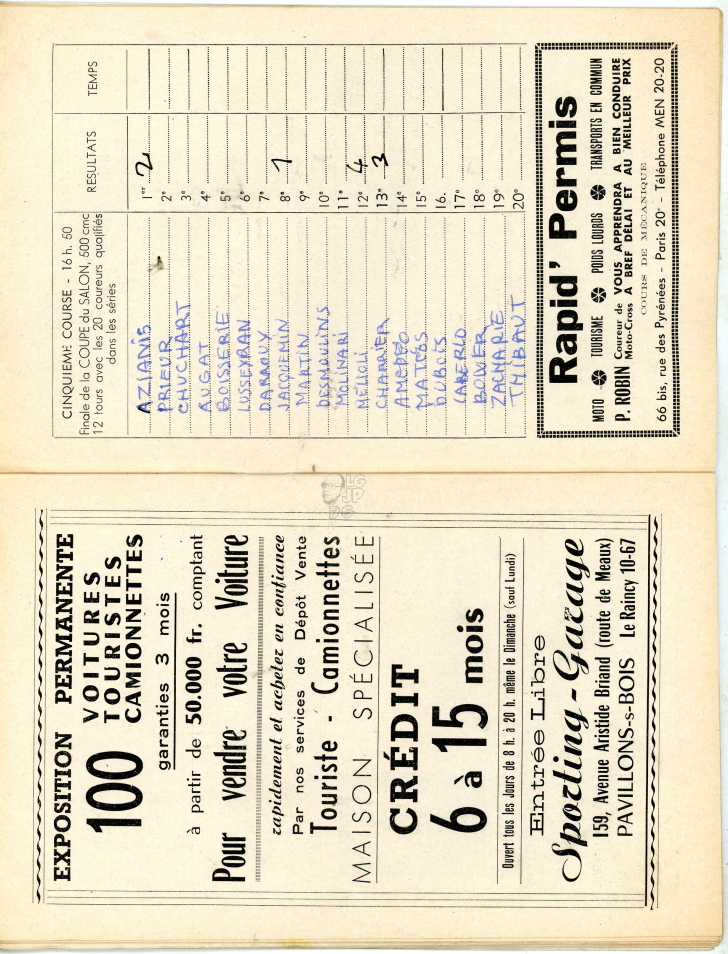 EXPOSITION PERMANENTE
100 VOITURES
TOURISTES
CAMIONNETTES
garanties 3 mois
à partir de 50.000 fr. comptant
Pour vendre votre Voiture
rapidement et achetez en confiance
Par nos services de Dépôt Vente
Touriste - Camionnettes
MAISON SPÉCIALISÉE
CRÉDIT
6 à 15 mois
Ouvert tous les Jours de 8 h. à 20 h. même le Dimanche (sauf Lundi)
Entrée Libre
Sporting-Garage
159, Avenue Aristide Briand (route de Meaux)
PAVILLONS-s-BOIS Le Raincy 10-67
CINQUIEME COURSE - 16 h. 50
Finale de la COUPE du SALON, 500 cmc
12 tours avec les 20 coureurs qualifiés
dans les séries
RESULTATS
TEMPS
AZIANIS 1er 2
PRIEUR 2e
CHUCHART 3e
AUGAT 4e
BOISSERIE 5e
LUSSEYRAN 6e
DARROUY 7e
JACQUEMIN 8e 1
MARTIN 9e
DESMOULINS 10e
MOLINARI 11e
MÉLIOLI 12e 4
CHARRIER 13e 3
AMEDEO 14e
MATEOS 15e
DUBOIS 16.
LABERLO 17e
BOWER 18e
ZACHARIE 19e
THIBAUT 20e
Rapid' Permis
MOTO TOURISME POIDS LOURDS TRANSPORTS EN COMMUN
P. ROBIN Coureur de Moto-Cross VOUS APPRENDRA A BIEN CONDUIRE
A BREF DÉLAI ET AU MEILLEUR PRIX
COURS DE MÉCANIQUE
66 bis, rue des Pyrénées - Paris 20e - Téléphone MEN 20-20